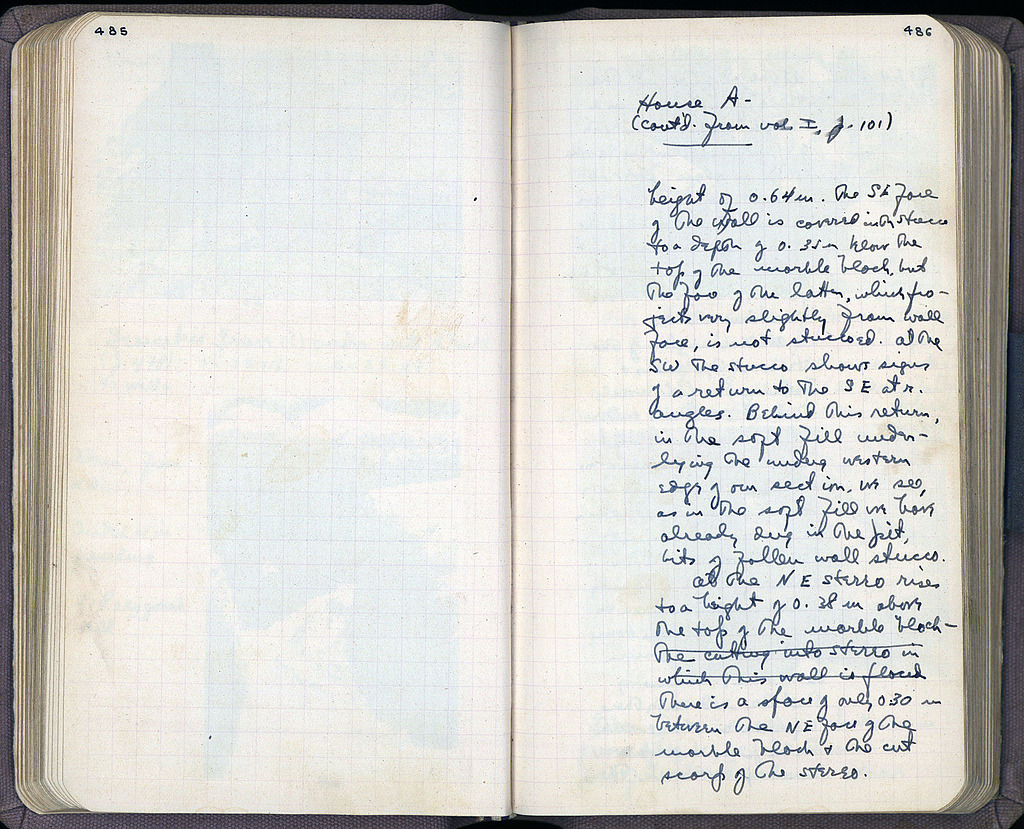 485
486
House A-
(cont'd. from vol I, p. 101)
height of 0.64 m. The SE face
of the wall is covered with stucco
to a depth of 0.35 m below the
top of the marble block, but
the face of the latter, which pro-
jects very slightly from wall
face, is not stuccoed. At the
SW the stucco shows signs
of a return to the SE at r.
angles. Behind this return,
in the soft fill under-
lying the western
edge of our section, we see,
as in the soft fill we have
already dug in the pit,
bits of fallen wall stucco.
At the NE stereo rises
to a height of 0.38 m above
the top of the marble block-
the cutting into stereo in
which this wall is placed
There is a space of only 0.30 m
between the NE face of the
marble block & the cut
scarp of the stereo.